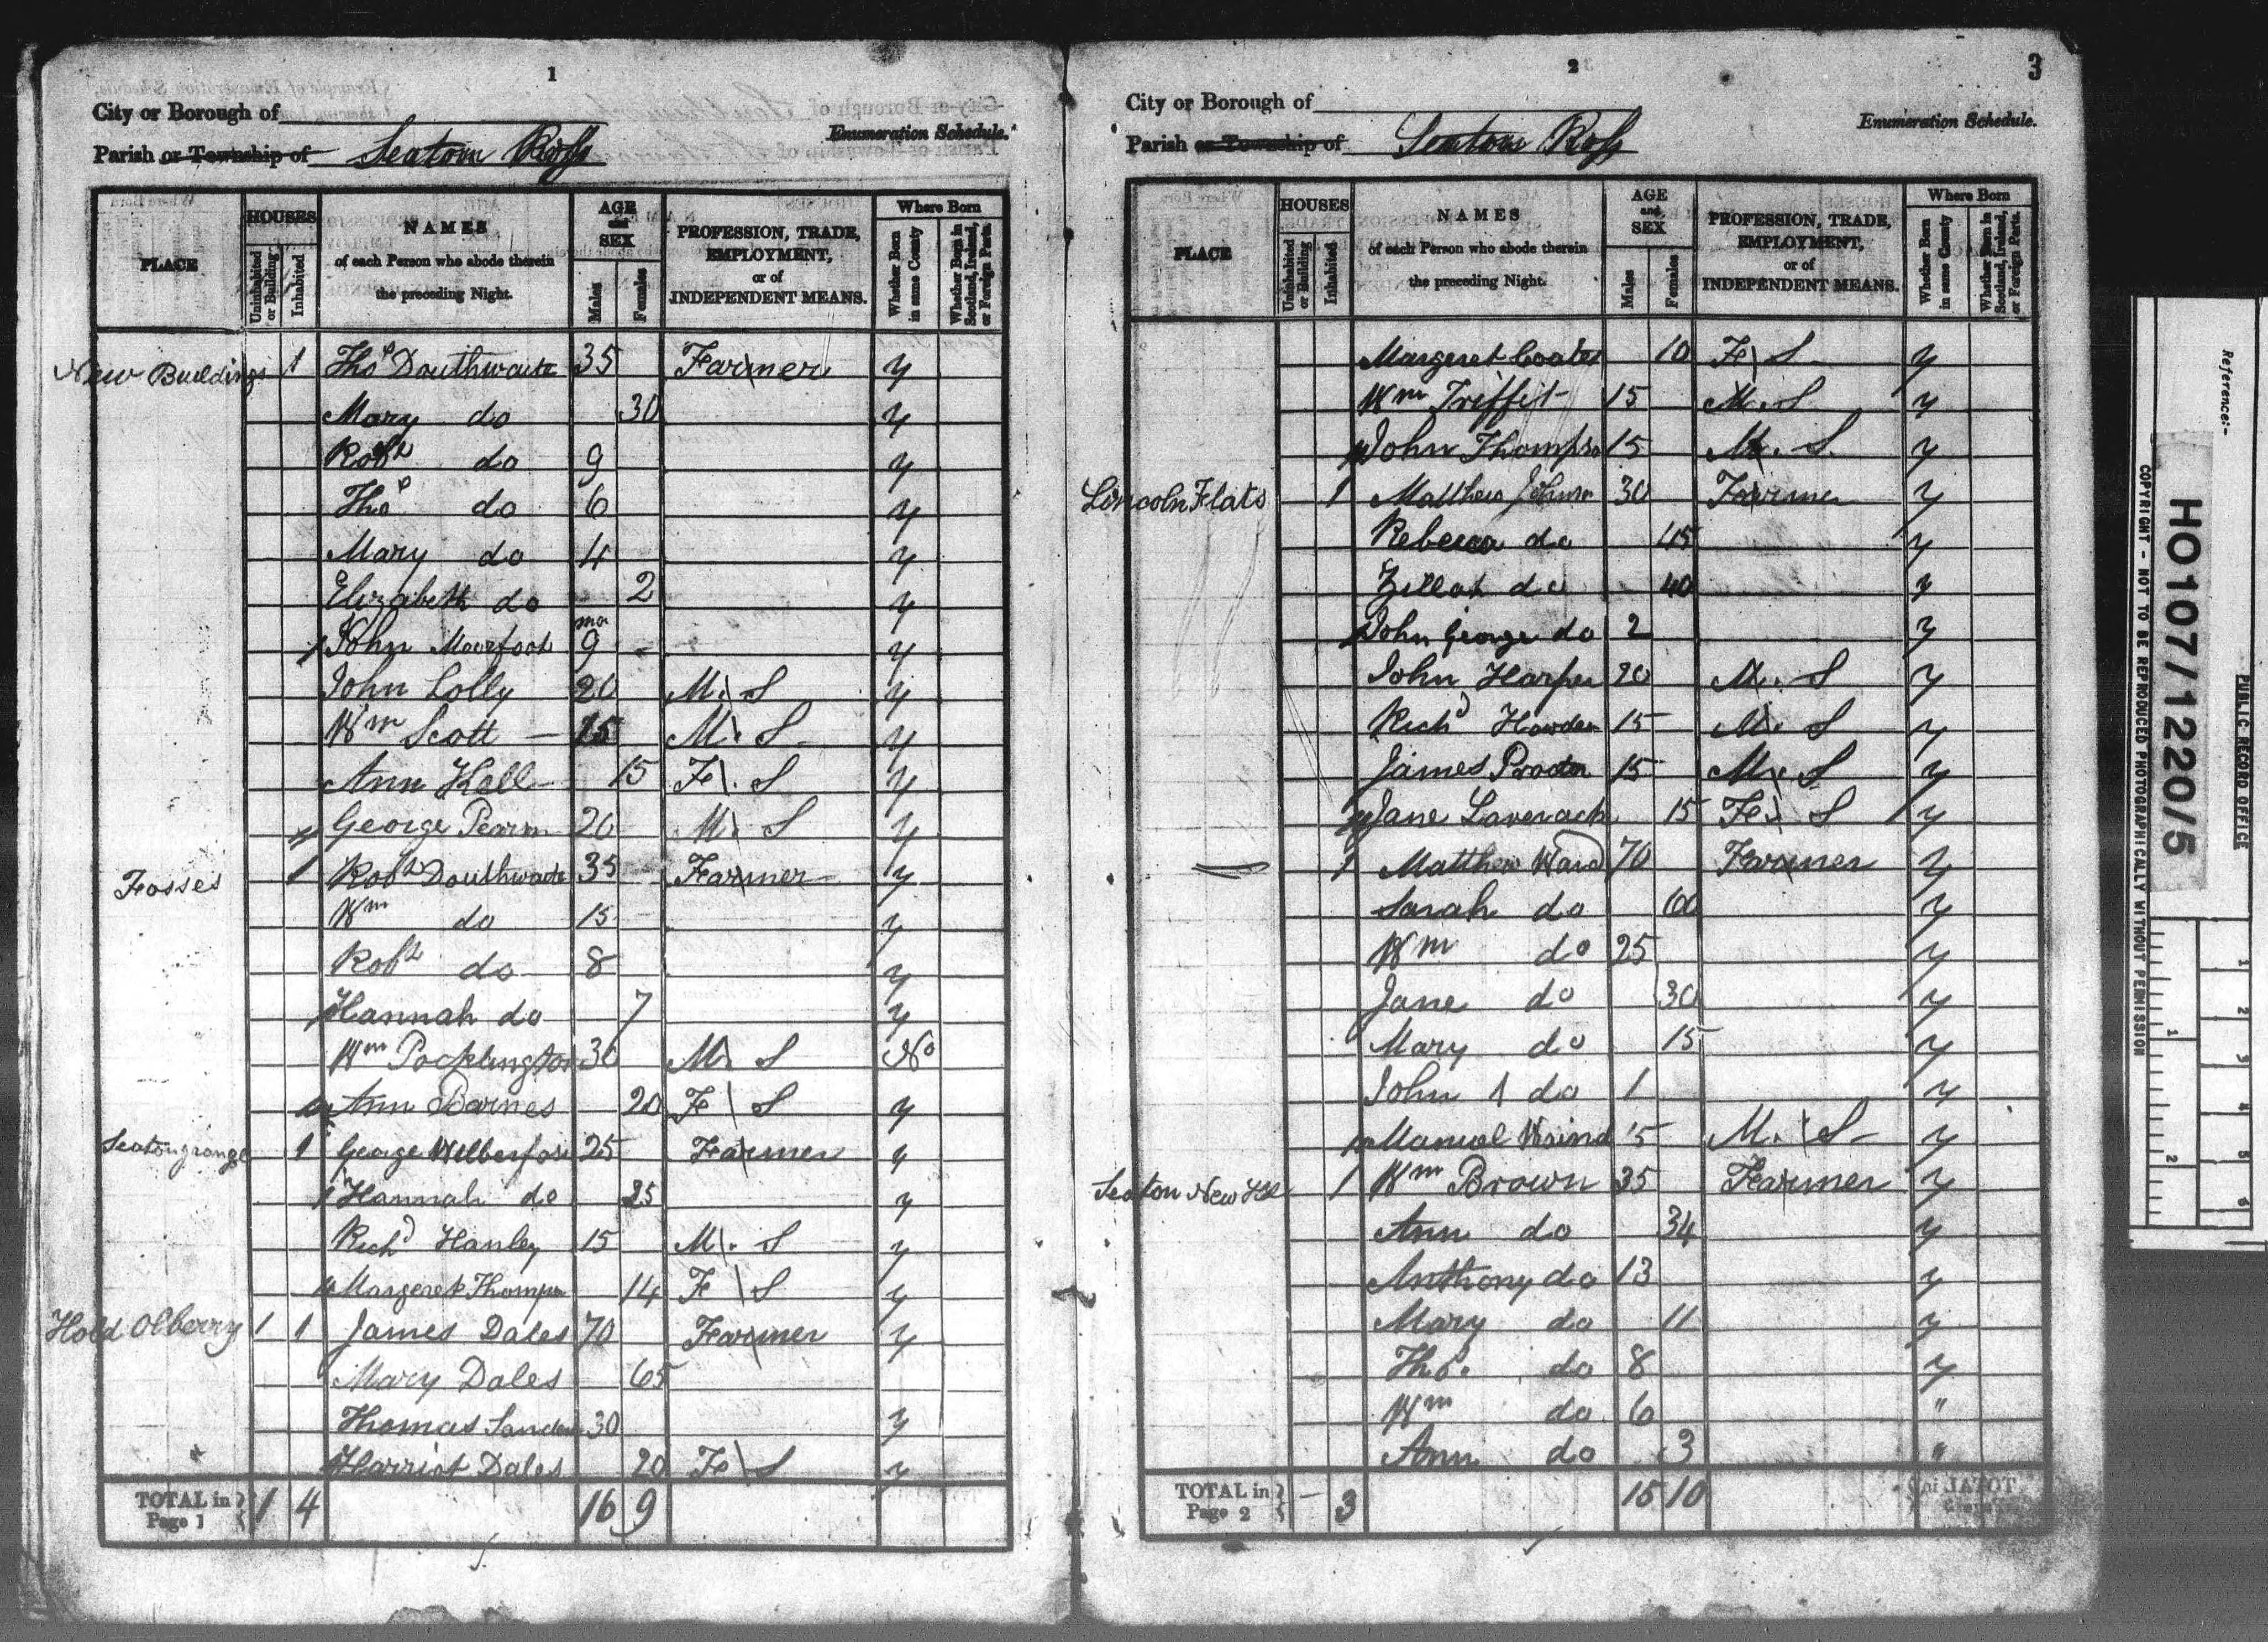 1
City or Borough of
Enumeration Schedule.
Parish or Township of Seaton Ross
PLACE
HOUSES
Uninhabited or Building
Inhabited
NAMES of each Person who abode therein the preceding Night.
AGE and SEX
Males
Females
PROFESSION, TRADE, EMPLOYMENT, or of INDEPENDENT MEANS.
Where Born
Whether Born in same County
Whether Born in Scotland, Ireland, or Foreign Parts.
New Buildings 1 Thos Douthwaite 35 Farmer y
Mary do 30 y
Robt do 9 y
Thos do 6 y
Mary do 4 y
Elizabeth do 2 y
John Moorfoot 9 mo y
John Lolly 20 M. S y
Wm Scott 15 M. S y
Ann Hall 15 F. S y
George 20 M. S y
Fosses 1 Robt Douthwaite 35 Farmer y
Wm do 15 y
Robt do 8 y
Hannah do 7 y
Wm Pocklington 30 M. S No
Ann Barnes 20 F S y
Seaton grange 1 George Wilberfose 25 Farmer y
Hannah do 25 y
Richd Hanley 15 M. S y
Margeret Thompn 14 F S y
Hold Olberry 1 1 James Dales 70 Farmer y
Mary Dales 65
Thomas 30 y
Harriot Dales 20 F S y
TOTAL in Page 1 1 4 16 9
2
3
City or Borough of
Enumeration Schedule.
Parish or Township of Seaton Ross
PLACE
HOUSES
Uninhabited or Building
Inhabited
NAMES of each Person who abode therein the preceding Night.
AGE and SEX
Males
Females
PROFESSION, TRADE, EMPLOYMENT, or of INDEPENDENT MEANS.
Where Born
Whether Born in same County
Whether Born in Scotland, Ireland, or Foreign Parts.
Margeret Coates 10 F S y
Wm Triffit 15 M. S y
John Thompson 15 M. S y
Lincoln Flats 1 Matthew 30 Farmer y
Rebecca do 45 y
Zillah do 40 y
John George do 2 y
John Harper 20 M. S y
Richd Howden 15 M. S y
James Procter 15 M. S y
Jane Laverack 15 F. S y
1 Matthew Ward 70 Farmer y
Sarah do 60 y
Wm do 25 y
Jane do 30 y
Mary do 15 y
John do 1 y
Manuel 15 M. S y
Seaton New Hll 1 Wm Brown 35 Farmer y
Ann do 34 y
Anthony do 13 y
Mary do 11 y
Thos. do 8 y
Wm do 6 "
Ann do 3 "
TOTAL in Page 2 - 3 15 10
Reference:-
PUBLIC RECORD OFFICE
HO107/1220/5
COPYRIGHT - NOT TO BE REPRODUCED PHOTOGRAPHICALLY WITHOUT PERMISSION
1
2
3
4
5
6
1
2